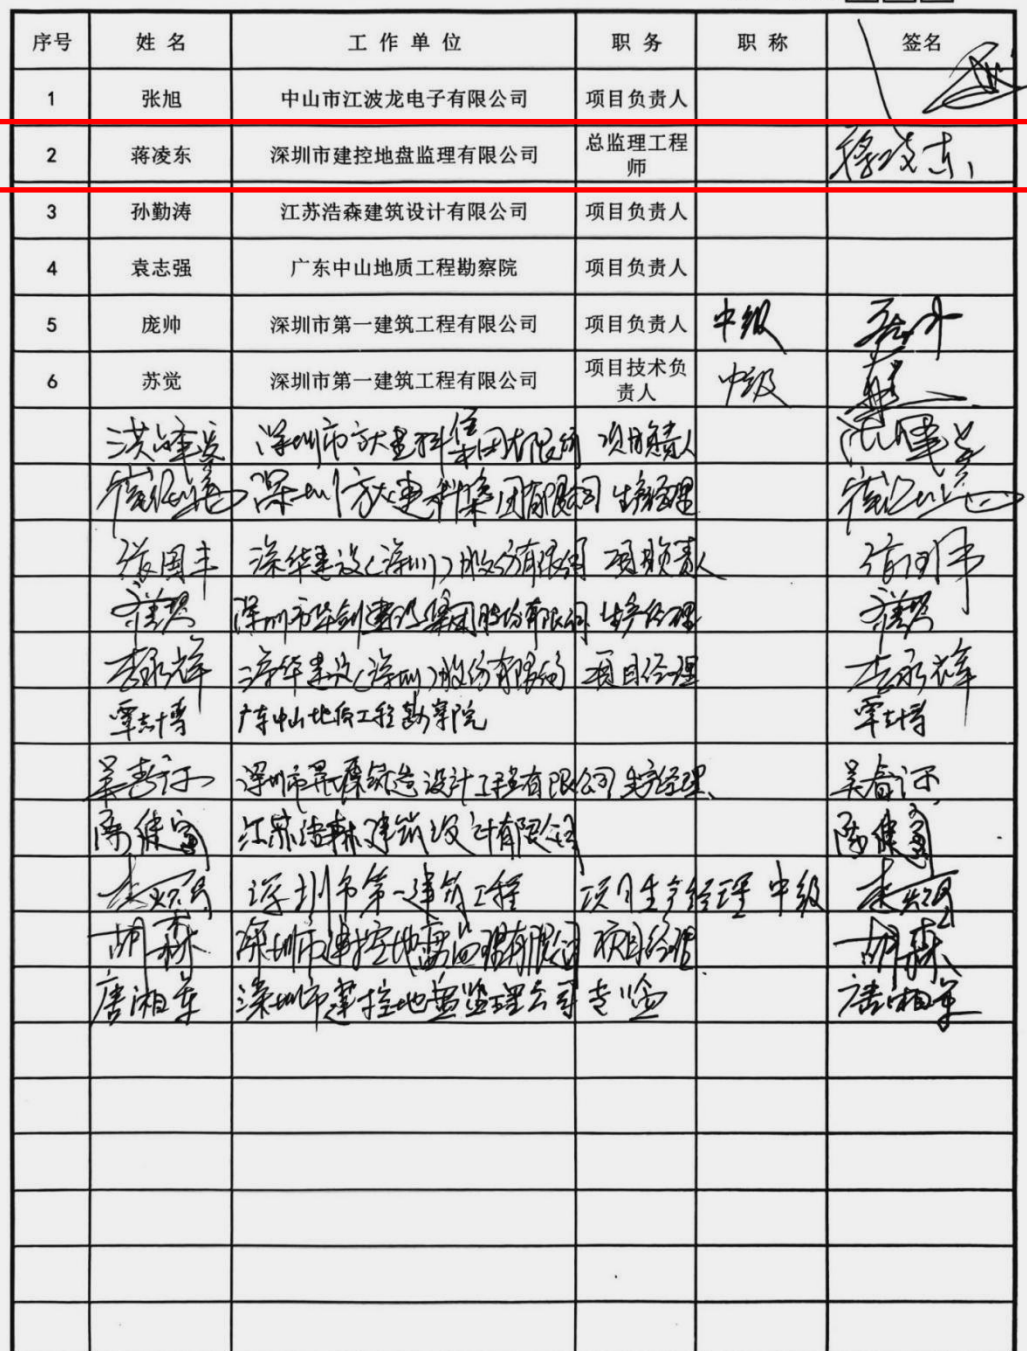 序号 姓名 工作单位 职务 职称 签名
1 张旭 中山市江波龙电子有限公司 项目负责人
2 蒋凌东 深圳市建控地盘监理有限公司 总监理工程师 蒋凌东
3 孙勤涛 江苏浩森建筑设计有限公司 项目负责人
4 袁志强 广东中山地质工程勘察院 项目负责人
5 庞帅 深圳市第一建筑工程有限公司 项目负责人 中级
6 苏觉 深圳市第一建筑工程有限公司 项目技术负责人 中级
深圳市方大建科集团有限公司 项目负责人
深圳市方大建科集团有限公司 生产经理
张国丰 深华建设(深圳)股份有限公司 项目负责人 张国丰
深圳市华剑建设集团股份有限公司 生产经理
李永祥 深华建设(深圳)股份有限公司 项目经理 李永祥
覃志博 广东中山地质工程勘察院 覃志博
深圳市 设计工程有限公司 生产经理
陈健 江苏浩森建筑设计有限公司 陈健
深圳市第一建筑工程 项目生产经理 中级
胡森 深圳市建控地盘监理有限公司 项目经理 胡森
唐湘军 深圳市建控地盘监理公司 专监 唐湘军